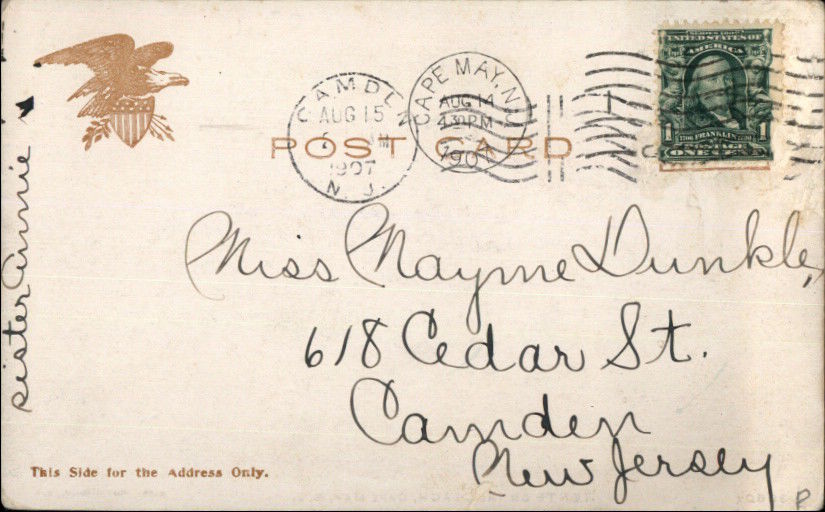 CAMDEN
AUG 15
1907
N. J.
CAPE MAY, N.J.
AUG 14
430 PM
1907
SERIES 1902
UNITED STATES OF
AMERICA
1 1
FRANKLIN
POSTAGE
ONE CENT
POST CARD
Miss Mayme Dunkle,
618 Cedar St.
Camden
New Jersey
sister Annie
This Side for the Address Only.